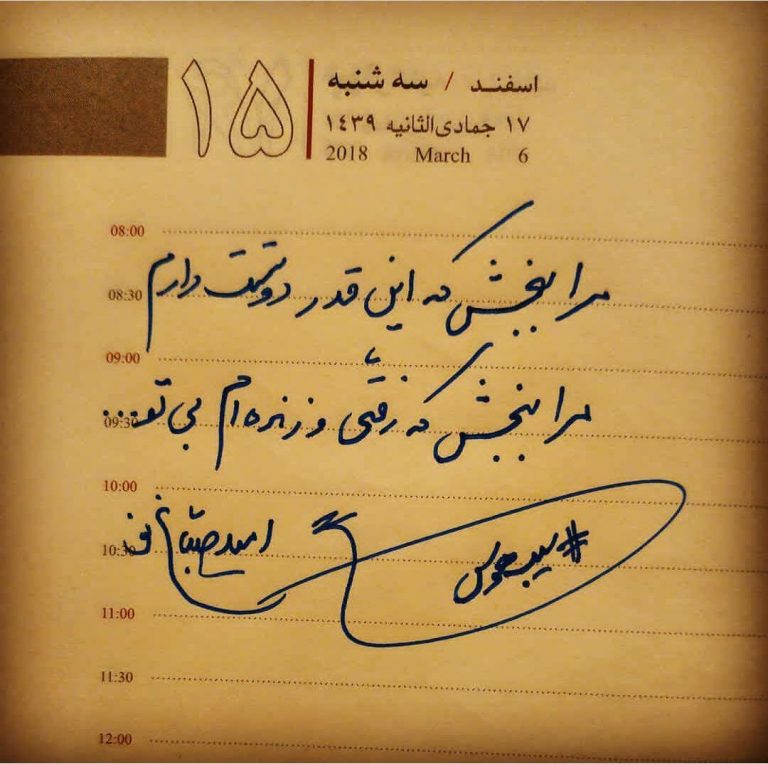 ۱۵
اسفند / سه شنبه
۱۷ جمادی‌الثانیه ۱۴۳۹
2018 March 6
08:00
مرا ببخش که این قدر دوستت دارم
08:30
09:00
مرا ببخش که رفتی و زنده ام بی تو...
09:30
10:00
#سیب_هوس
امید صباغ نو
10:30
11:00
11:30
12:00